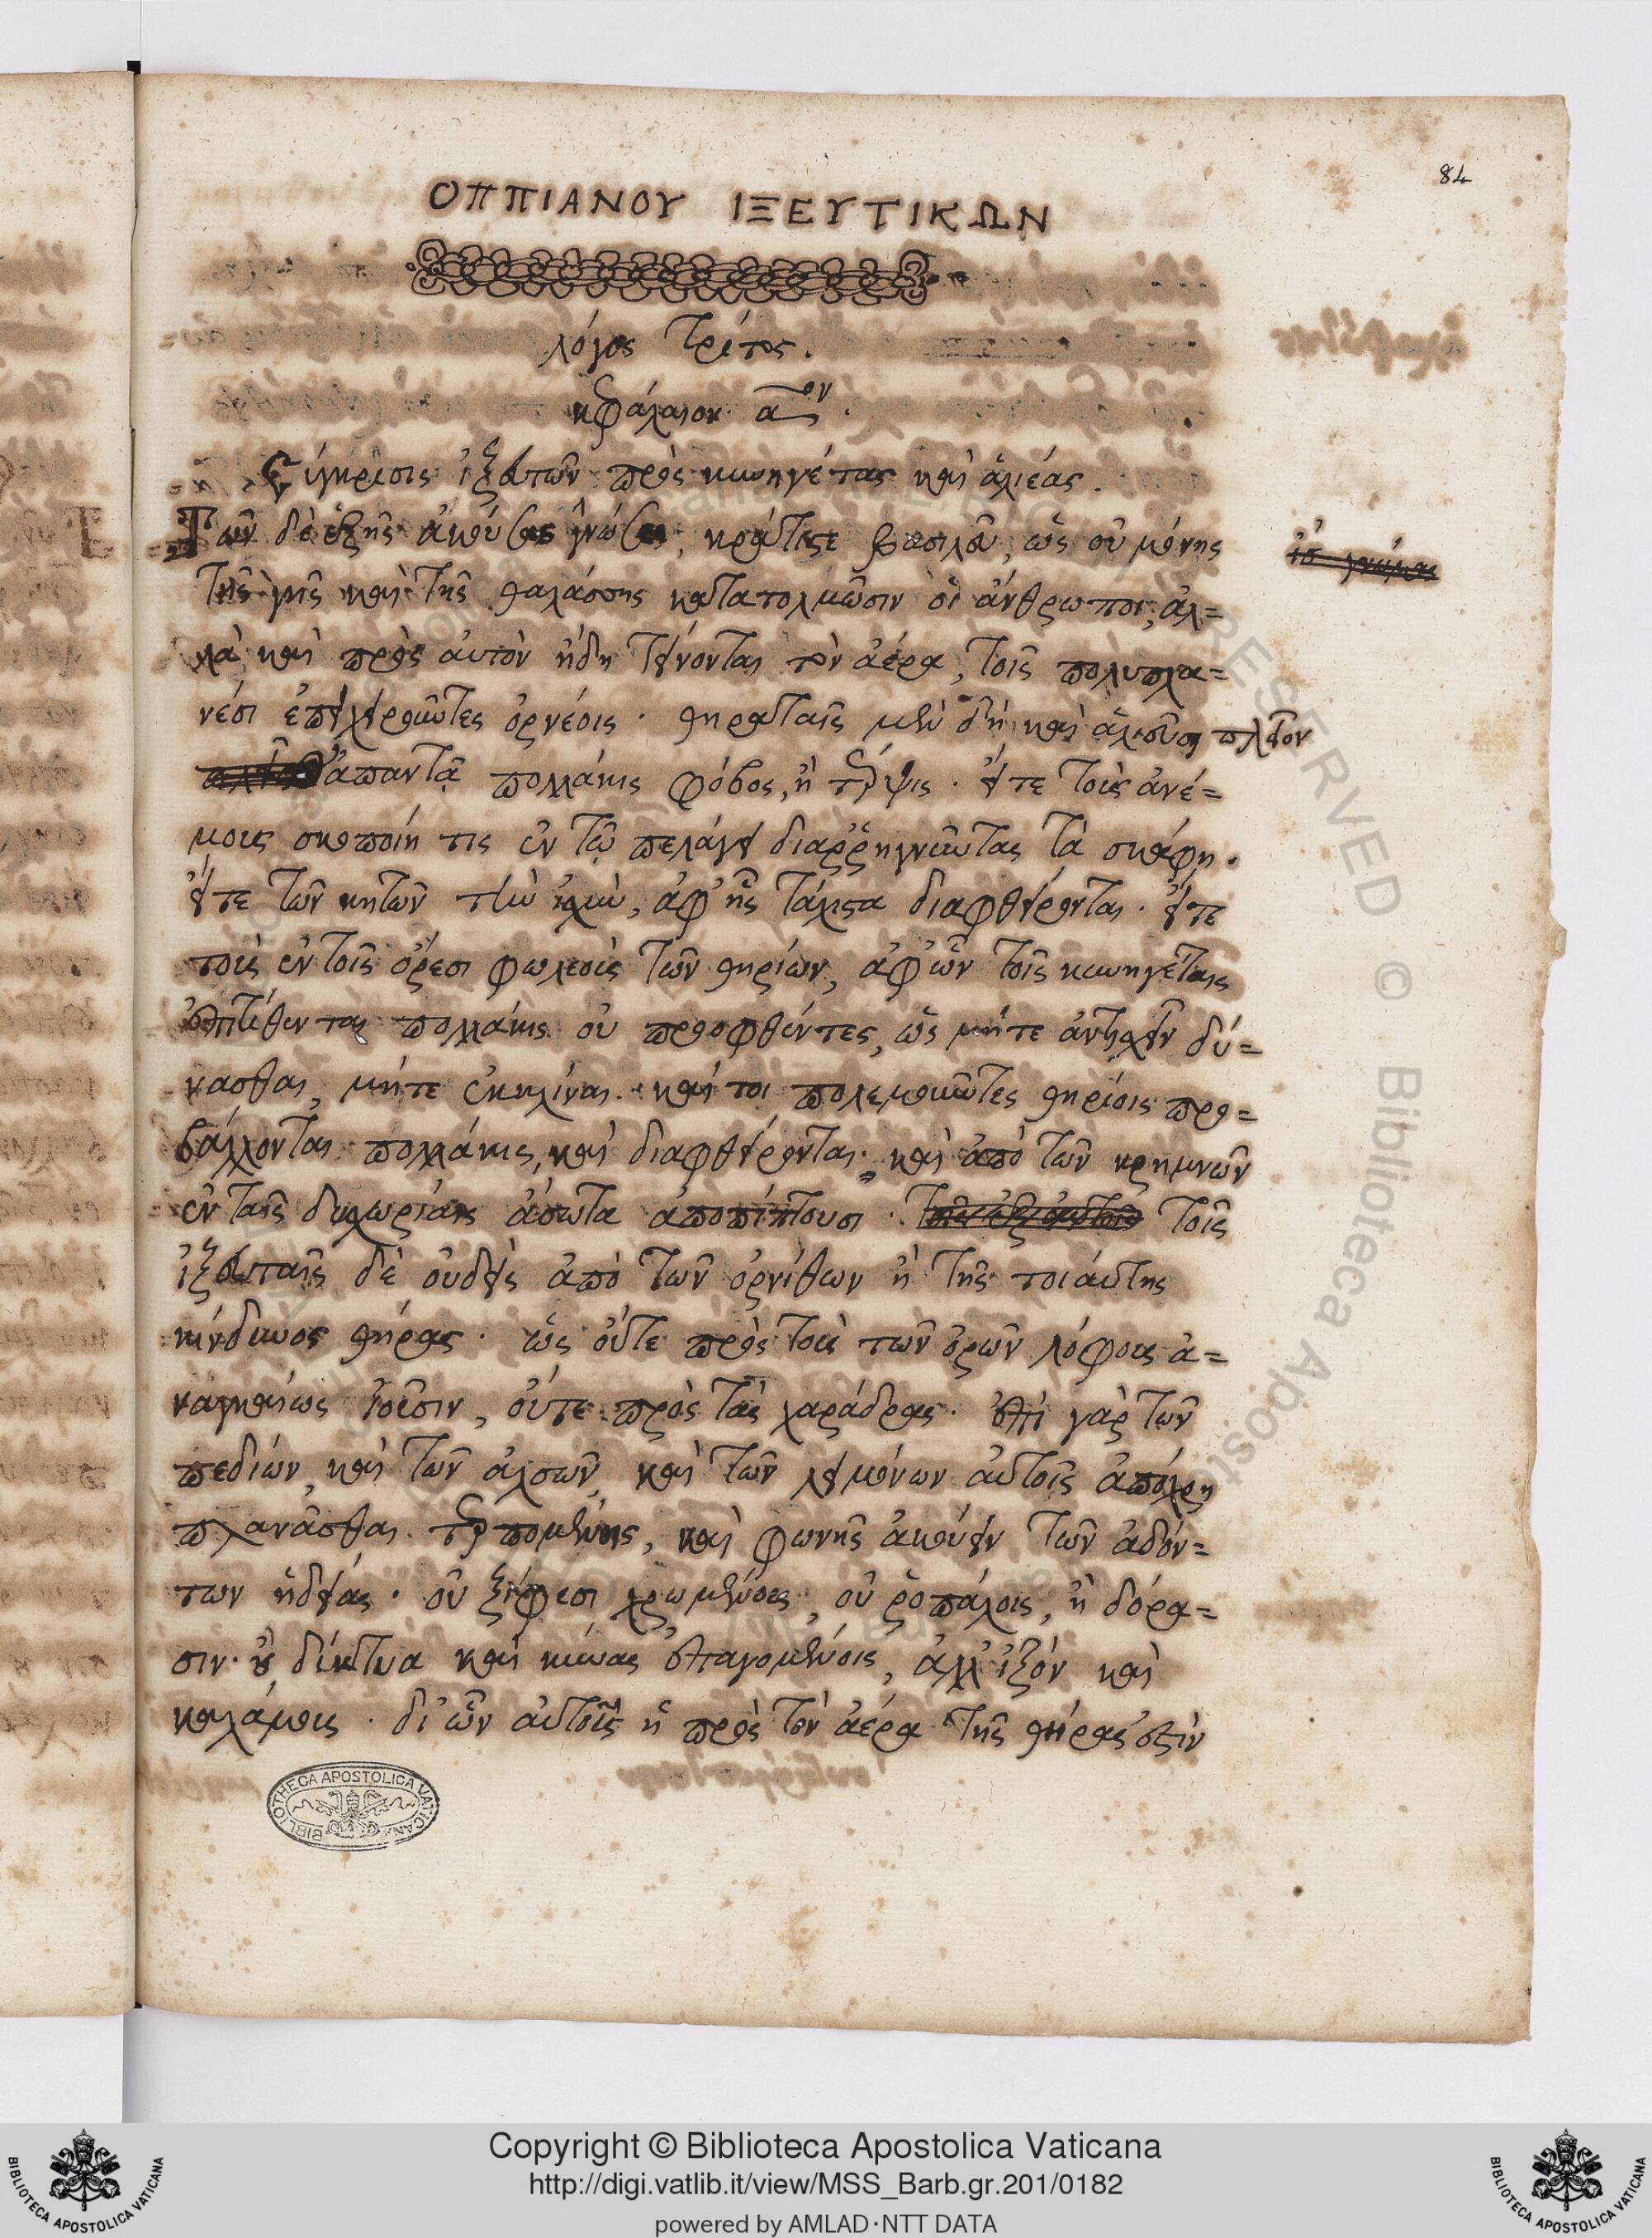 84
ΟΠΠΙΑΝΟΥ ΙΞΕΥΤΙΚΩΝ
λόγος τρίτος.
κεφάλαιον αον.
Σύγκρισις ἰξευτῶν πρὸς κυνηγέτας καὶ ἁλιέας.
Τῶν δὲ ἑξῆς ἀκούσας γνώσῃ, κράτιστε βασιλεῦ, ὡς οὐ μόνης
τῆς γῆς καὶ τῆς θαλάσσης κατατολμῶσιν οἱ ἄνθρωποι, ἀλ=
λὰ καὶ πρὸς αὐτὸν ἤδη τείνονται τὸν ἀέρα, τοῖς πολυπλα=
νέσι ἐπιχειροῦντες ὀρνέοις. θηραταῖς μὲν δὴ καὶ ἁλιεῦσι πλεῖον
ἀπαντᾷ πολλάκις φόβος, ἢ τέρψις. εἴτε τοὺς ἀνέ=
μους σκοποίη τις ἐν τῷ πελάγει διαῤῥηγνῦντας τὰ σκάφη.
εἴτε τῶν κητῶν τὴν ἀφ' ἧς τάχιστα διαφθείρονται. εἴτε
τοὺς ἐν τοῖς ὄρεσι φωλεοὺς τῶν θηρίων, ἀφ' ὧν τοῖς κυνηγέταις
ἐπιτίθενται πολλάκις οὐ προοφθέντες, ὡς μήτε ἀντισχεῖν δύ=
νασθαι, μήτε ἐκκλίναι. καί τοι πολεμοῦντες θηρίοις προ=
βάλλονται πολλάκις, καὶ διαφθείρονται. καὶ ἀπὸ τῶν κρημνῶν
ἐν ταῖς δυσχωρίαις ἄσωτα ἀποπίπτουσι. τοῖς
ἰξευταῖς δὲ οὐδεὶς ἀπὸ τῶν ὀρνίθων ἢ τῆς τοιαύτης
κίνδυνος θήρας. ὡς οὔτε πρὸς τοὺς τῶν ὀρῶν λόφους ἀ=
ναγκαίως ἰοῦσιν, οὔτε πρὸς τὰς χαράδρας. ἐπὶ γὰρ τῶν
πεδίων, καὶ τῶν ἀλσῶν, καὶ τῶν λειμώνων αὐτοῖς ἀπόχρη
πλανᾶσθαι τερπομένοις, καὶ φωνῆς ἀκούειν τῶν ἀδόν=
των ἡδείας. οὐ ξίφεσι χρωμένοις, οὐ ῥοπάλοις, ἢ δόρα=
σιν. οὐ δίκτυα καὶ κύνας ἐπαγομένοις, ἀλλ' ἰξὸν καὶ
καλάμους. δι' ὧν αὐτοῖς ἡ πρὸς τὸν ἀέρα τῆς θήρας ἐστὶν
BIBLIOTHECA APOSTOLICA VATICANA
Copyright © Biblioteca Apostolica Vaticana
http://digi.vatlib.it/view/MSS_Barb.gr.201/0182
powered by AMLAD·NTT DATA